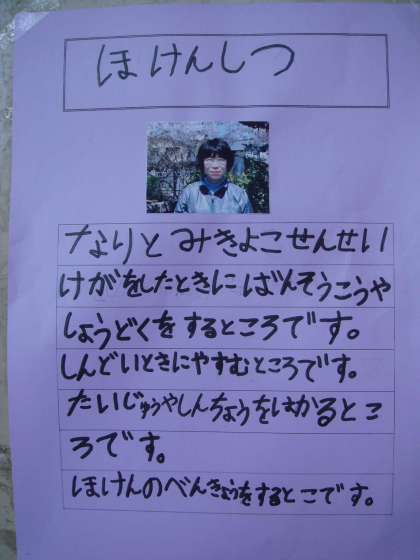 ほけんしつ
なりとみきよこせんせい
けがをしたときにばんそうこうや
しょうどくをするところです。
しんどいときにやすむところです。
たいじゅうやしんちょうをはかるとこ
ろです。
ほけんのべんきょうをするとこです。